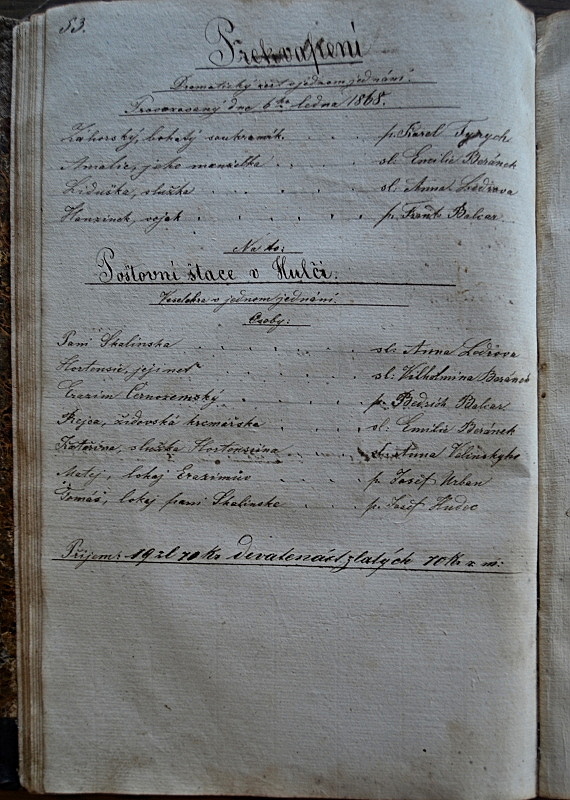 53.
Překvapení
Dramatický žert v jednom jednání.
Provozovaný dne 6ho ledna 1868.
Záhorský, bohatý soukromník. . . . p. Karel Tyrych
Amalie, jeho manželka . . . . sl. Emilie Beránek
Liduška, služka . . . . . sl. Anna Ledrova
Hanzinek, voják . . . . . p. Frant. Balcar
Na to:
Poštovní štace v Hulči.
Veselohra v jednom jednání.
Osoby:
Paní Skalinska . . . . . sl. Anna Ledrova
Hortensie, její neť . . . . sl. Vilhelmina Beránek
Erazim Černozemský . . . . p. Bedrich Balcar
Rejca, židovská krčmářka . . . sl. Emilie Beránek
Katerina, služka Hortenseina . . . Anna
Matej, lokaj Erazimův . . . . p. Josef Urban
Tomáš, lokaj paní Skalinske . . . p. Josef Hudec
Příjem: 19 zl 70 Kr devatenáct zlatých 70 Kr r. m: